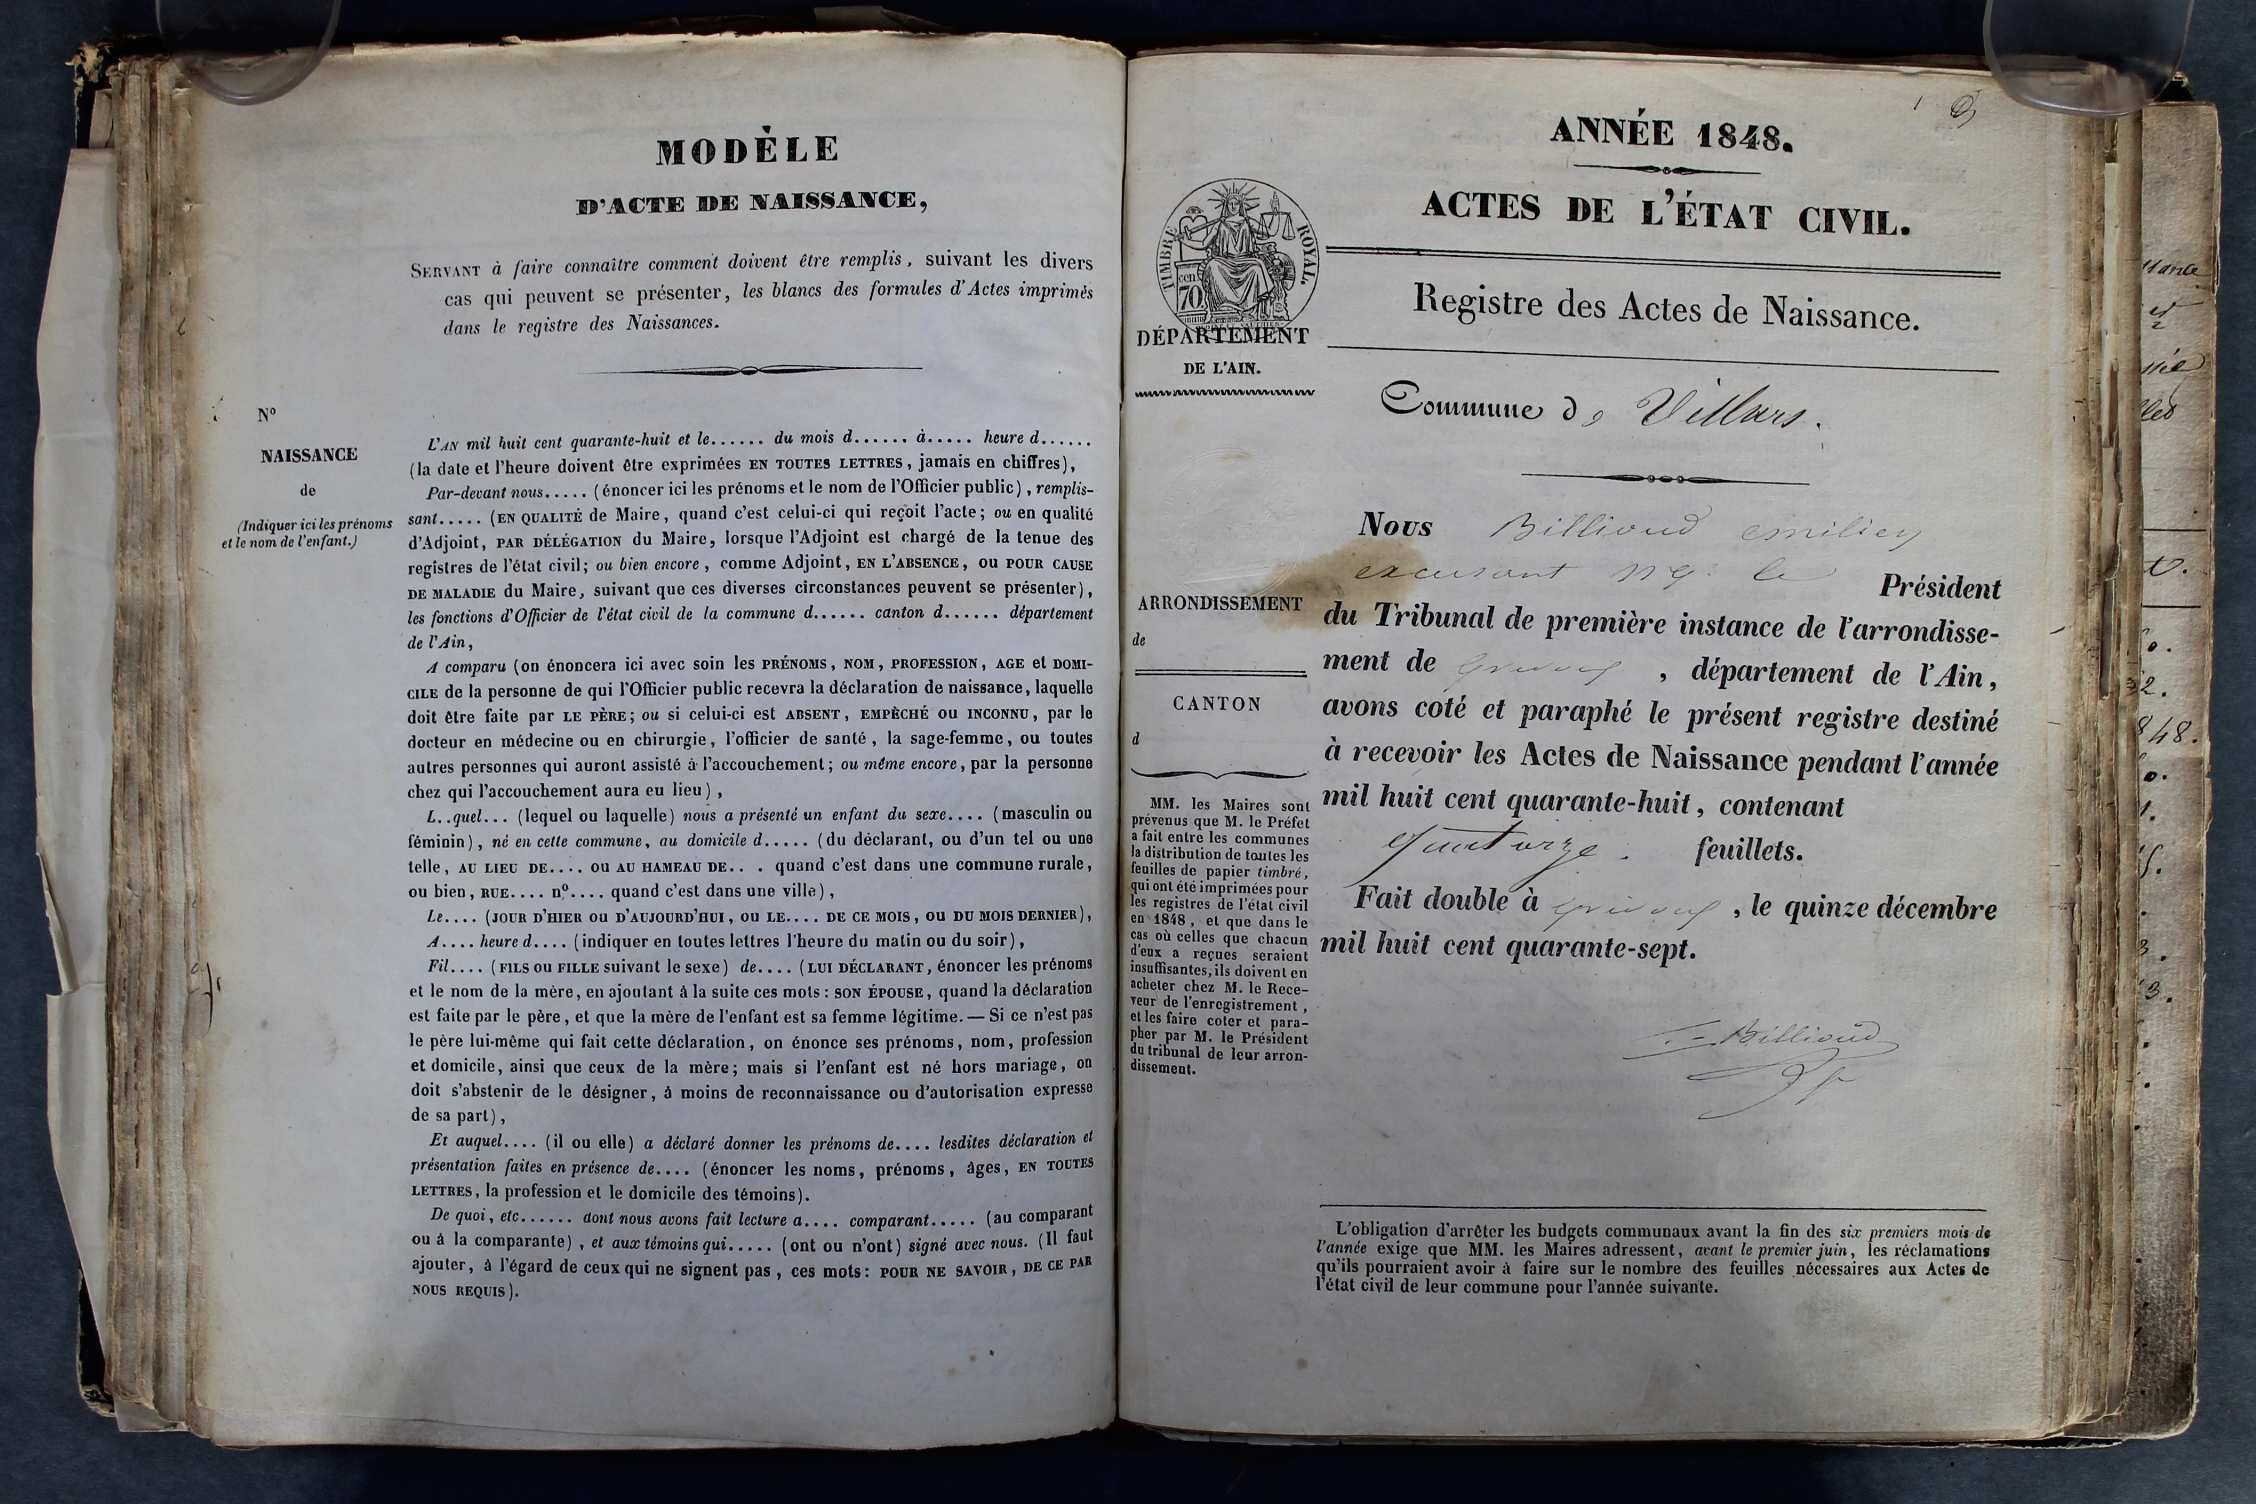 MODÈLE
D'ACTE DE NAISSANCE,
SERVANT à faire connaître comment doivent être remplis, suivant les divers
cas qui peuvent se présenter, les blancs des formules d'Actes imprimés
dans le registre des Naissances.
Nº
NAISSANCE
de
(Indiquer ici les prénoms
et le nom de l'enfant.)
L'AN mil huit cent quarante-huit et le...... du mois d...... à..... heure d......
(la date et l'heure doivent être exprimées EN TOUTES LETTRES, jamais en chiffres),
Par-devant nous..... (énoncer ici les prénoms et le nom de l'Officier public), remplis-
sant..... (EN QUALITÉ de Maire, quand c'est celui-ci qui reçoit l'acte; ou en qualité
d'Adjoint, PAR DÉLÉGATION du Maire, lorsque l'Adjoint est chargé de la tenue des
registres de l'état civil; ou bien encore, comme Adjoint, EN L'ABSENCE, OU POUR CAUSE
DE MALADIE du Maire, suivant que ces diverses circonstances peuvent se présenter),
les fonctions d'Officier de l'état civil de la commune d...... canton d...... département
de l'Ain,
A comparu (on énoncera ici avec soin les PRÉNOMS, NOM, PROFESSION, AGE et DOMI-
CILE de la personne de qui l'Officier public recevra la déclaration de naissance, laquelle
doit être faite par LE PÈRE; ou si celui-ci est ABSENT, EMPÈCHÉ OU INCONNU, par le
docteur en médecine ou en chirurgie, l'officier de santé, la sage-femme, ou toutes
autres personnes qui auront assisté à l'accouchement; ou même encore, par la personne
chez qui l'accouchement aura eu lieu),
L..quel... (lequel ou laquelle) nous a présenté un enfant du sexe.... (masculin ou
féminin), né en cette commune, au domicile d..... (du déclarant, ou d'un tel ou une
telle, AU LIEU DE.... OU AU HAMEAU DE.. . quand c'est dans une commune rurale,
ou bien, RUE.... nº.... quand c'est dans une ville),
Le.... (JOUR D'HIER OU D'AUJOURD'HUI, OU LE.... DE CE MOIS, OU DU MOIS DERNIER),
A.... heure d.... (indiquer en toutes lettres l'heure du matin ou du soir),
Fil.... (FILS OU FILLE suivant le sexe) de.... (LUI DÉCLARANT, énoncer les prénoms
et le nom de la mère, en ajoutant à la suite ces mots: SON ÉPOUSE, quand la déclaration
est faite par le père, et que la mère de l'enfant est sa femme légitime. — Si ce n'est pas
le père lui-même qui fait cette déclaration, on énonce ses prénoms, nom, profession
et domicile, ainsi que ceux de la mère; mais si l'enfant est né hors mariage, on
doit s'abstenir de le désigner, à moins de reconnaissance ou d'autorisation expresse
de sa part),
Et auquel.... (il ou elle) a déclaré donner les prénoms de.... lesdites déclaration et
présentation faites en présence de.... (énoncer les noms, prénoms, âges, EN TOUTES
LETTRES, la profession et le domicile des témoins).
De quoi, etc...... dont nous avons fait lecture a.... comparant..... (au comparant
ou à la comparante), et aux témoins qui..... (ont ou n'ont) signé avec nous. (Il faut
ajouter, à l'égard de ceux qui ne signent pas, ces mots: POUR NE SAVOIR, DE CE PAR
NOUS REQUIS).
1
ANNÉE 1848.
ACTES DE L'ÉTAT CIVIL.
TIMBRE ROYAL.
cen.
70.
DÉPARTEMENT
DE L'AIN.
Registre des Actes de Naissance.
Commune de Villars.
Nous Billioud emilien
excusant Mr le Président
du Tribunal de première instance de l'arrondisse-
ment de , département de l'Ain,
avons coté et paraphé le présent registre destiné
à recevoir les Actes de Naissance pendant l'année
mil huit cent quarante-huit, contenant
quatorze. feuillets.
Fait double à , le quinze décembre
mil huit cent quarante-sept.
Billioud
ARRONDISSEMENT
de
CANTON
d
MM. les Maires sont
prévenus que M. le Préfet
a fait entre les communes
la distribution de toutes les
feuilles de papier timbré,
qui ont été imprimées pour
les registres de l'état civil
en 1848, et que dans le
cas où celles que chacun
d'eux a reçues seraient
insuffisantes, ils doivent en
acheter chez M. le Rece-
veur de l'enregistrement,
et les faire coter et para-
pher par M. le Président
du tribunal de leur arron-
dissement.
L'obligation d'arrêter les budgets communaux avant la fin des six premiers mois de
l'année exige que MM. les Maires adressent, avant le premier juin, les réclamations
qu'ils pourraient avoir à faire sur le nombre des feuilles nécessaires aux Actes de
l'état civil de leur commune pour l'année suivante.